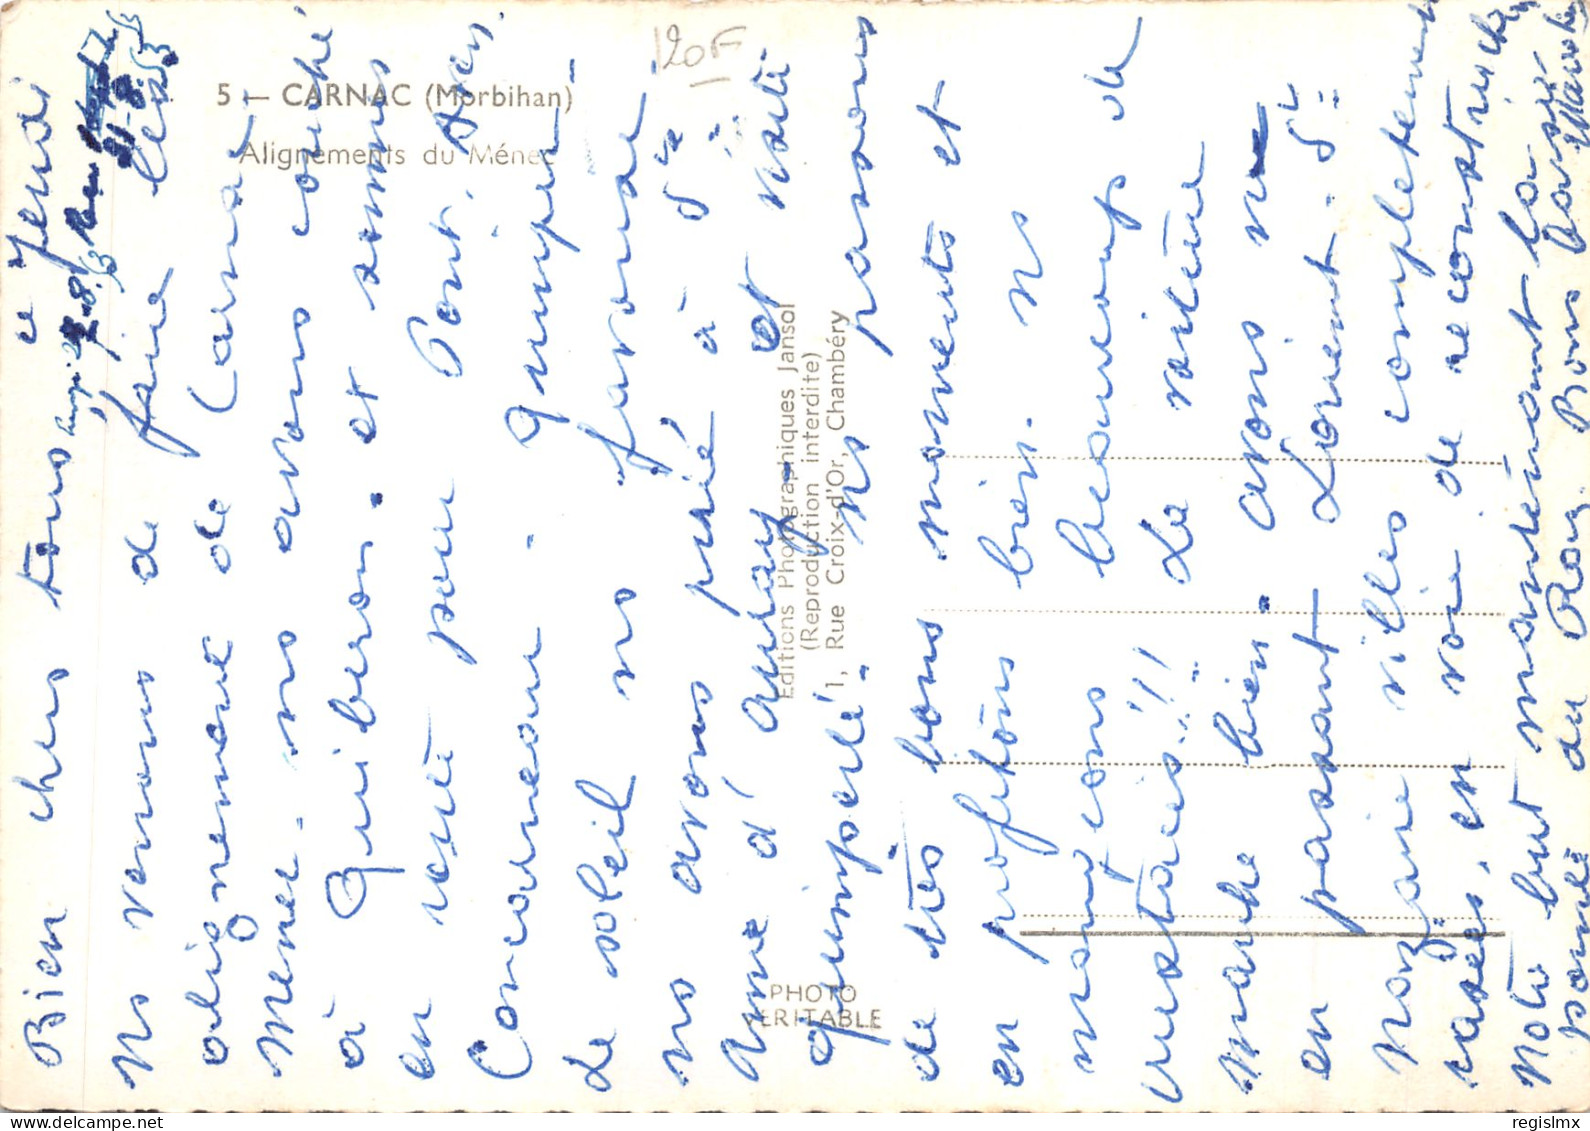 5 — CARNAC (Morbihan)
Alignements du Ménec
120F
Editions Photographiques Jansol
(Reproduction interdite)
1, Rue Croix-d'Or, Chambéry
PHOTO
VERITABLE
Bien chers tous ce Jeudi
Ns venons de faire les
alignement de Carnac
Menec. ns avons couché
à Quiberon. et sommes
en route pour Pont. Aven.
Concarneau. Quimper.
Le soleil ns favorise.
ns avons prié à Ste
Anne d'Auray. et visité
Quimperlé. Ns passons
de très bons moments et
en profitons bien. Ns
mangeons beaucoup de
crustacés!!! La voiture
marche bien. avons vu
en passant Lorient. St
Nazaire villes complètement
rasées, en voie de reconstruction
Notre but maintenant la
pointe du Raz. Bons baisers